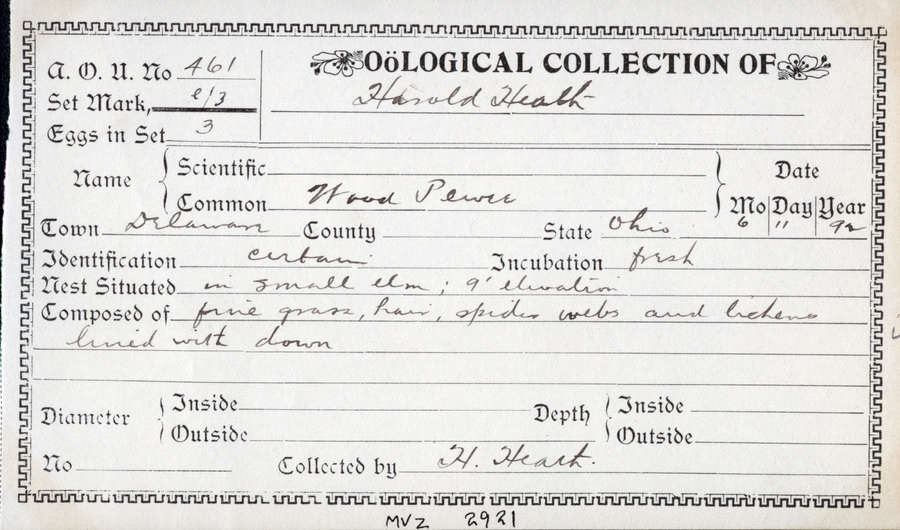 A. O. U. No 461
OöLOGICAL COLLECTION OF
Set Mark, e/3
Harold Heath
Eggs in Set 3
Name
Scientific
Common Wood Pewee
Date
Mo Day Year
6 11 92
Town Delaware County State Ohio
Identification certain Incubation fresh
Nest Situated in small elm; 9' elevation
Composed of fine grass, hair, spider webs and lichens
lined with down
Diameter
Inside
Outside
Depth
Inside
Outside
No Collected by H. Heath.
MVZ 2921